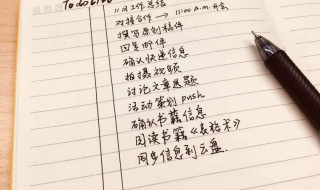 To do List
11月工作总结
对接合作 → 11:00 a.m. 开会
撰写原创稿件
回复邮件
确认快递信息
拍摄视频
讨论文章选题
活动策划 push
确认书籍信息
阅读书籍《表达术》
同步信息到云盘.